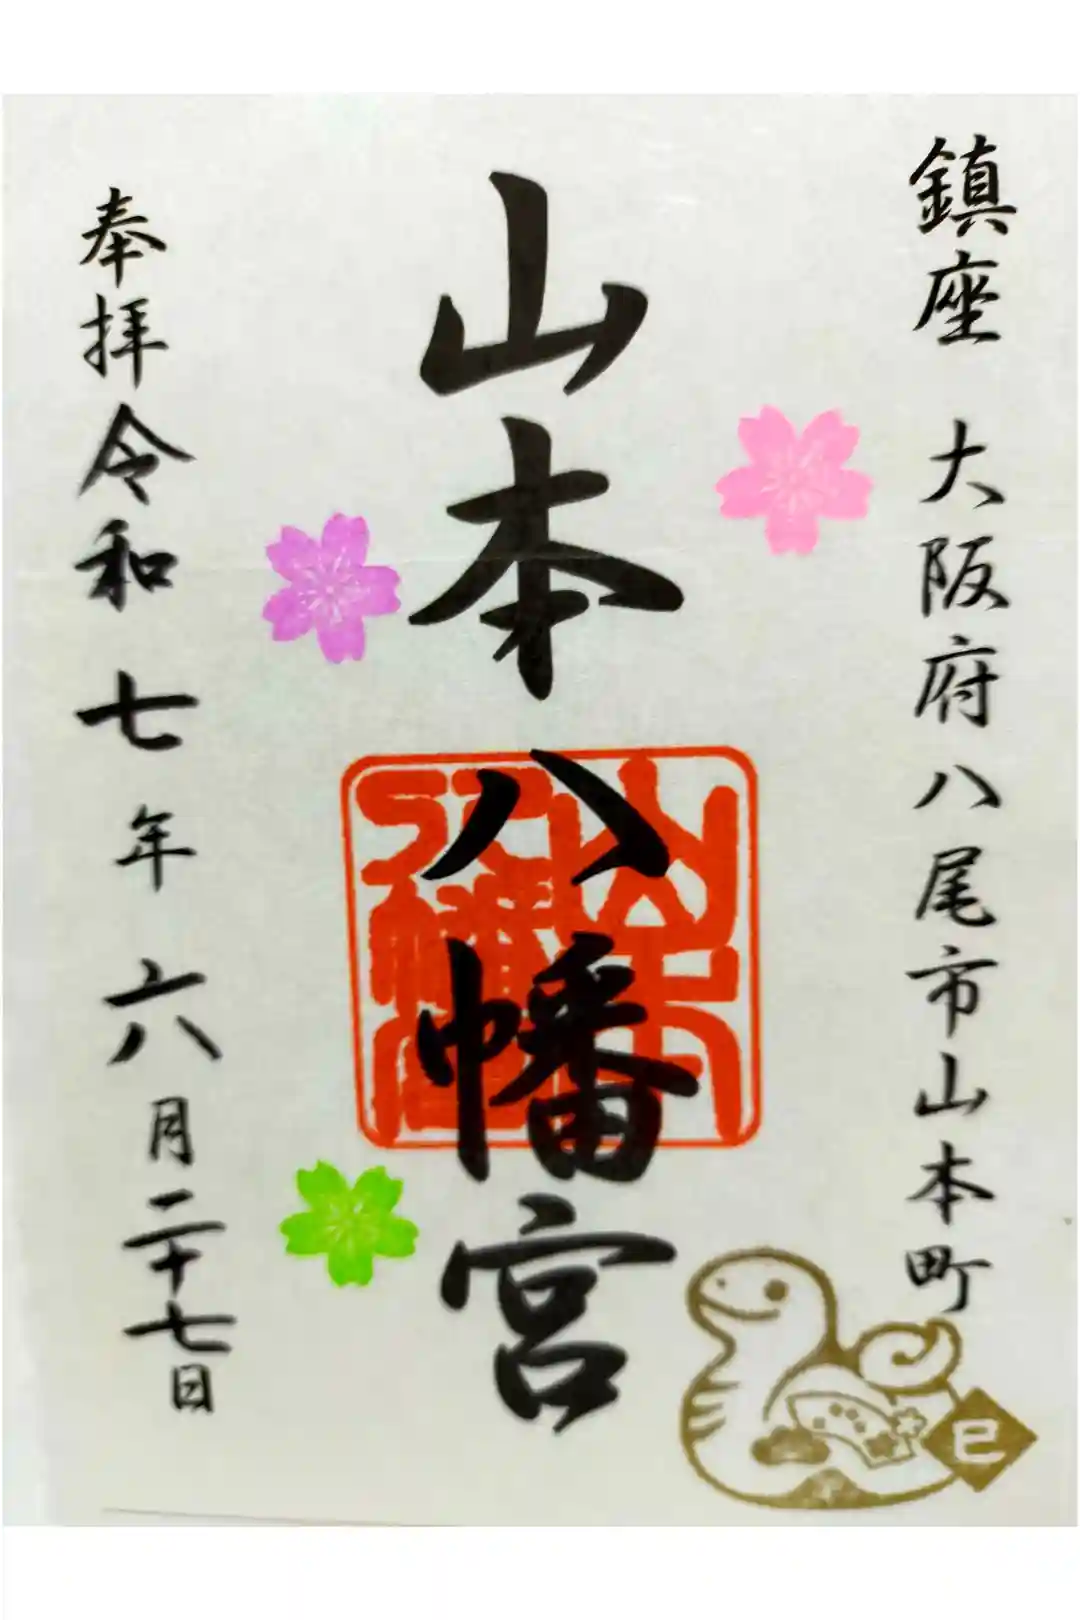 鎮座 大阪府八尾市山本町
山本八幡宮
山本八幡宮
奉拝 令和七年六月二十七日
巳